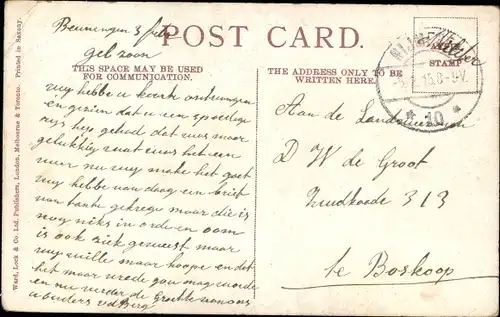 Beuningen 3 feb
gel zoon
POST CARD.
THIS SPACE MAY BE USED
FOR COMMUNICATION.
THE ADDRESS ONLY TO BE
WRITTEN HERE.
STAMP
NIJMEGEN
10
wy hebbe u kaart ontvangen
en gezien dat u een spoedige
rys heb gehad dat was maar
gelukkig want was het een
uur nu wy make het goet
wy hebbe van daag en brief
van tante gekrege maar die is
nog niks in orde en oom
is ook ziek geweest maar
wy wille maar hoope en dat
het maar vrede gou mag worde
en nu verder de Groete van ons
u ouders vd Berg
Aan de Landstorman
D W de Groot
Zuidkade 313
te Boskoop
Ward, Lock & Co. Ltd. Publishers, London, Melbourne & Toronto. Printed in Saxony.